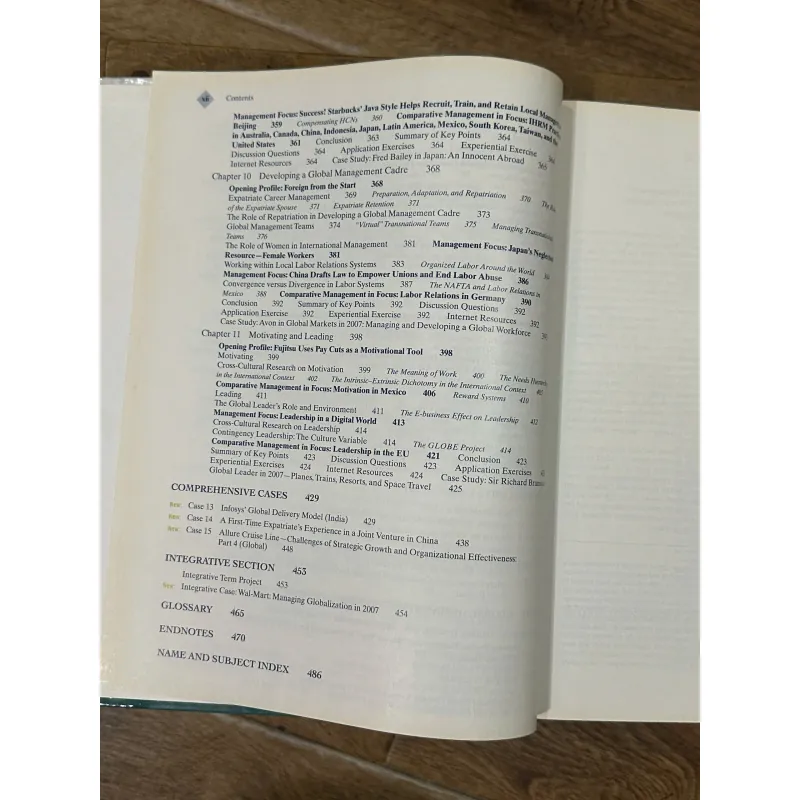 xii Contents
Management Focus: Success! Starbucks' Java Style Helps Recruit, Train, and Retain Local Managers
Beijing 359 Compensating HCNs 360 Comparative Management in Focus: IHRM
in Australia, Canada, China, Indonesia, Japan, Latin America, Mexico, South Korea, Taiwan, and the
United States 361 Conclusion 363 Summary of Key Points 364
Discussion Questions 364 Application Exercises 364 Experiential Exercise 364
Internet Resources 364 Case Study: Fred Bailey in Japan: An Innocent Abroad 365
Chapter 10 Developing a Global Management Cadre 368
Opening Profile: Foreign from the Start 368
Expatriate Career Management 369 Preparation, Adaptation, and Repatriation 370 The
of the Expatriate Spouse 371 Expatriate Retention 371
The Role of Repatriation in Developing a Global Management Cadre 373
Global Management Teams 374 "Virtual" Transnational Teams 375 Managing Transnational
Teams 376
The Role of Women in International Management 381 Management Focus: Japan's Neglected
Resource—Female Workers 381
Working within Local Labor Relations Systems 383 Organized Labor Around the World
Management Focus: China Drafts Law to Empower Unions and End Labor Abuse 386
Convergence versus Divergence in Labor Systems 387 The NAFTA and Labor Relations in
Mexico 388 Comparative Management in Focus: Labor Relations in Germany 390
Conclusion 392 Summary of Key Points 392 Discussion Questions 392
Application Exercise 392 Experiential Exercise 392 Internet Resources 392
Case Study: Avon in Global Markets in 2007: Managing and Developing a Global Workforce
Chapter 11 Motivating and Leading 398
Opening Profile: Fujitsu Uses Pay Cuts as a Motivational Tool 398
Motivating 399
Cross-Cultural Research on Motivation 399 The Meaning of Work 400 The Needs Hierarchy
in the International Context 402 The Intrinsic-Extrinsic Dichotomy in the International Context 405
Comparative Management in Focus: Motivation in Mexico 406 Reward Systems 410
Leading 411
The Global Leader's Role and Environment 411 The E-business Effect on Leadership 412
Management Focus: Leadership in a Digital World 413
Cross-Cultural Research on Leadership 414
Contingency Leadership: The Culture Variable 414 The GLOBE Project 414
Comparative Management in Focus: Leadership in the EU 421 Conclusion 423
Summary of Key Points 423 Discussion Questions 423 Application Exercises
Experiential Exercises 424 Internet Resources 424 Case Study: Sir Richard
Global Leader in 2007—Planes, Trains, Resorts, and Space Travel 425
COMPREHENSIVE CASES 429
New Case 13 Infosys' Global Delivery Model (India) 429
New Case 14 A First-Time Expatriate's Experience in a Joint Venture in China 438
New Case 15 Allure Cruise Line—Challenges of Strategic Growth and Organizational Effectiveness:
Part 4 (Global) 448
INTEGRATIVE SECTION 453
Integrative Term Project 453
New Integrative Case: Wal-Mart: Managing Globalization in 2007 454
GLOSSARY 465
ENDNOTES 470
NAME AND SUBJECT INDEX 486